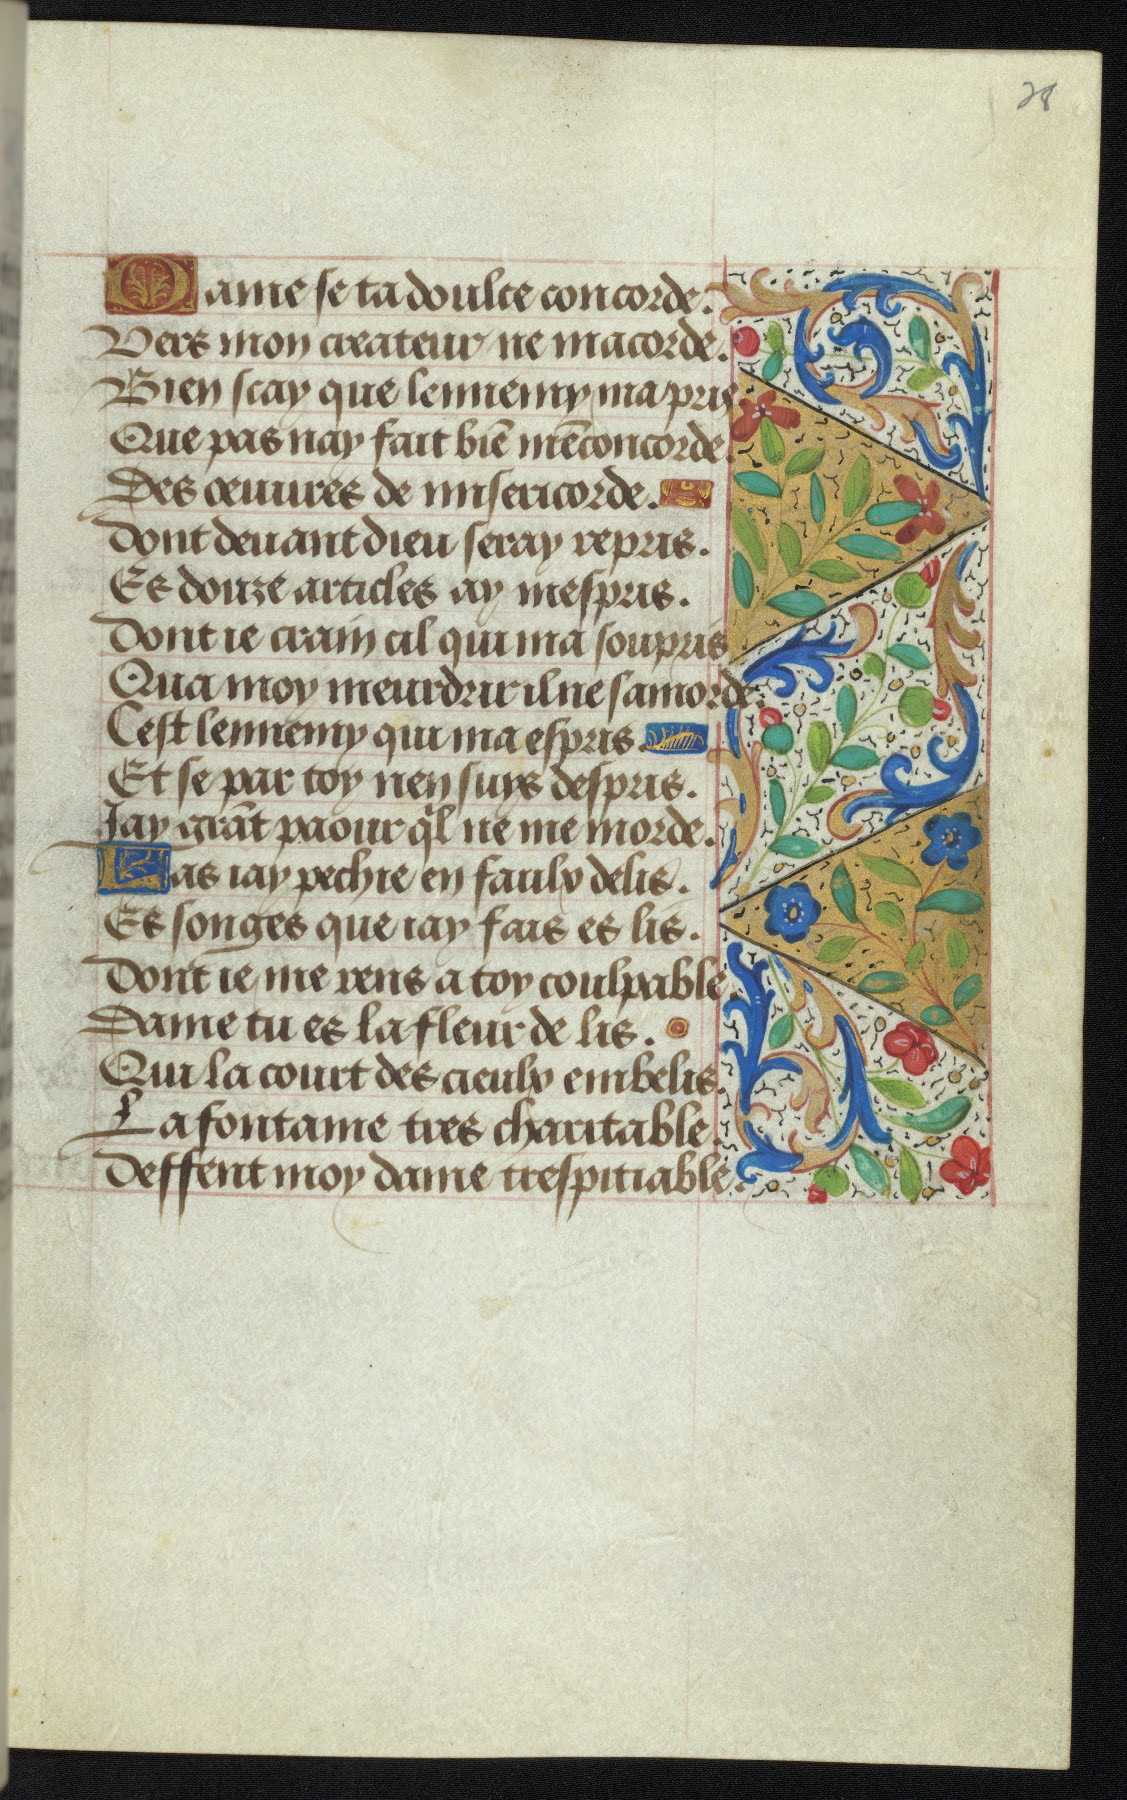 28
Dame se ta doulce concorde.
Vers mon createur ne macorde.
Bien scay que lennemy ma pris
Que pas nay fait biē mēconcorde.
Des oeuures de misericorde.
Dont deuant dieu seray repris.
Es douze articles ay mespris.
Dont ie crain cil qui ma soupris
Qua moy meurdrir il ne samorde.
Cest lennemy qui ma espris.
Et se par toy nen suys despris.
Jay grāt paour q̄l ne me morde.
Las iay pechie en faulx delis.
Es songes que iay fais es lis.
Dont ie me rens a toy coulpable
Dame tu es la fleur de lis.
Qui la court des cieulx embelis.
La fontaine tres charitable.
Deffent moy dame trespitiable.